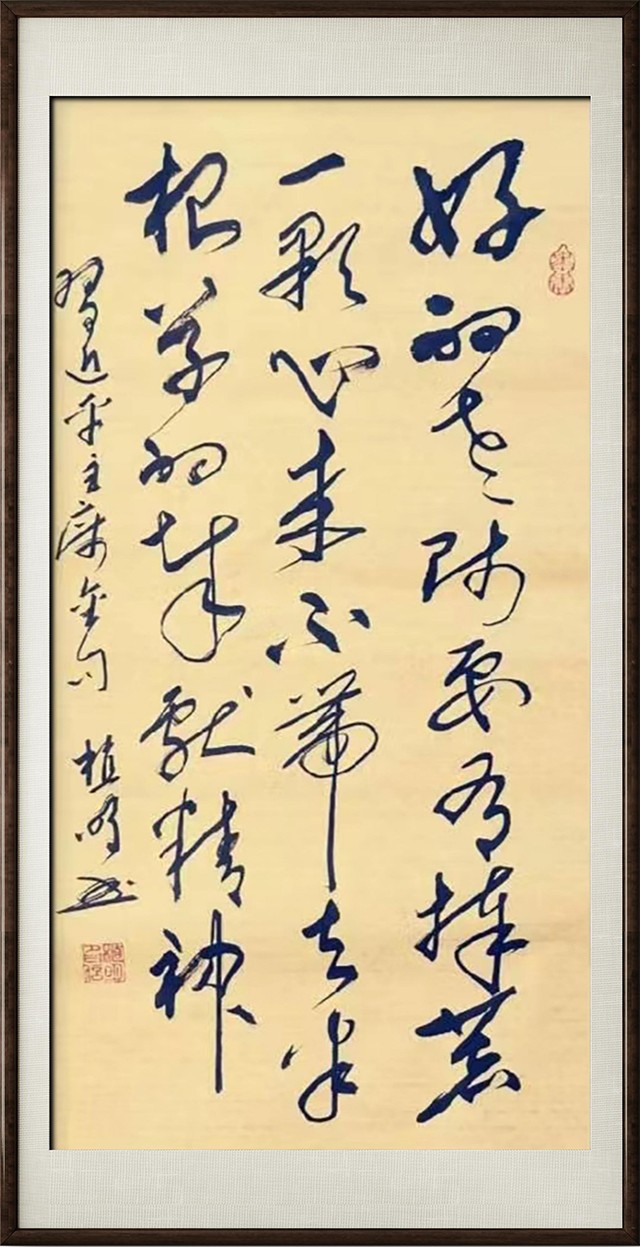 好的老师要有捧着
一颗心来不带去半
根草的奉献精神
习近平主席金句 植明书